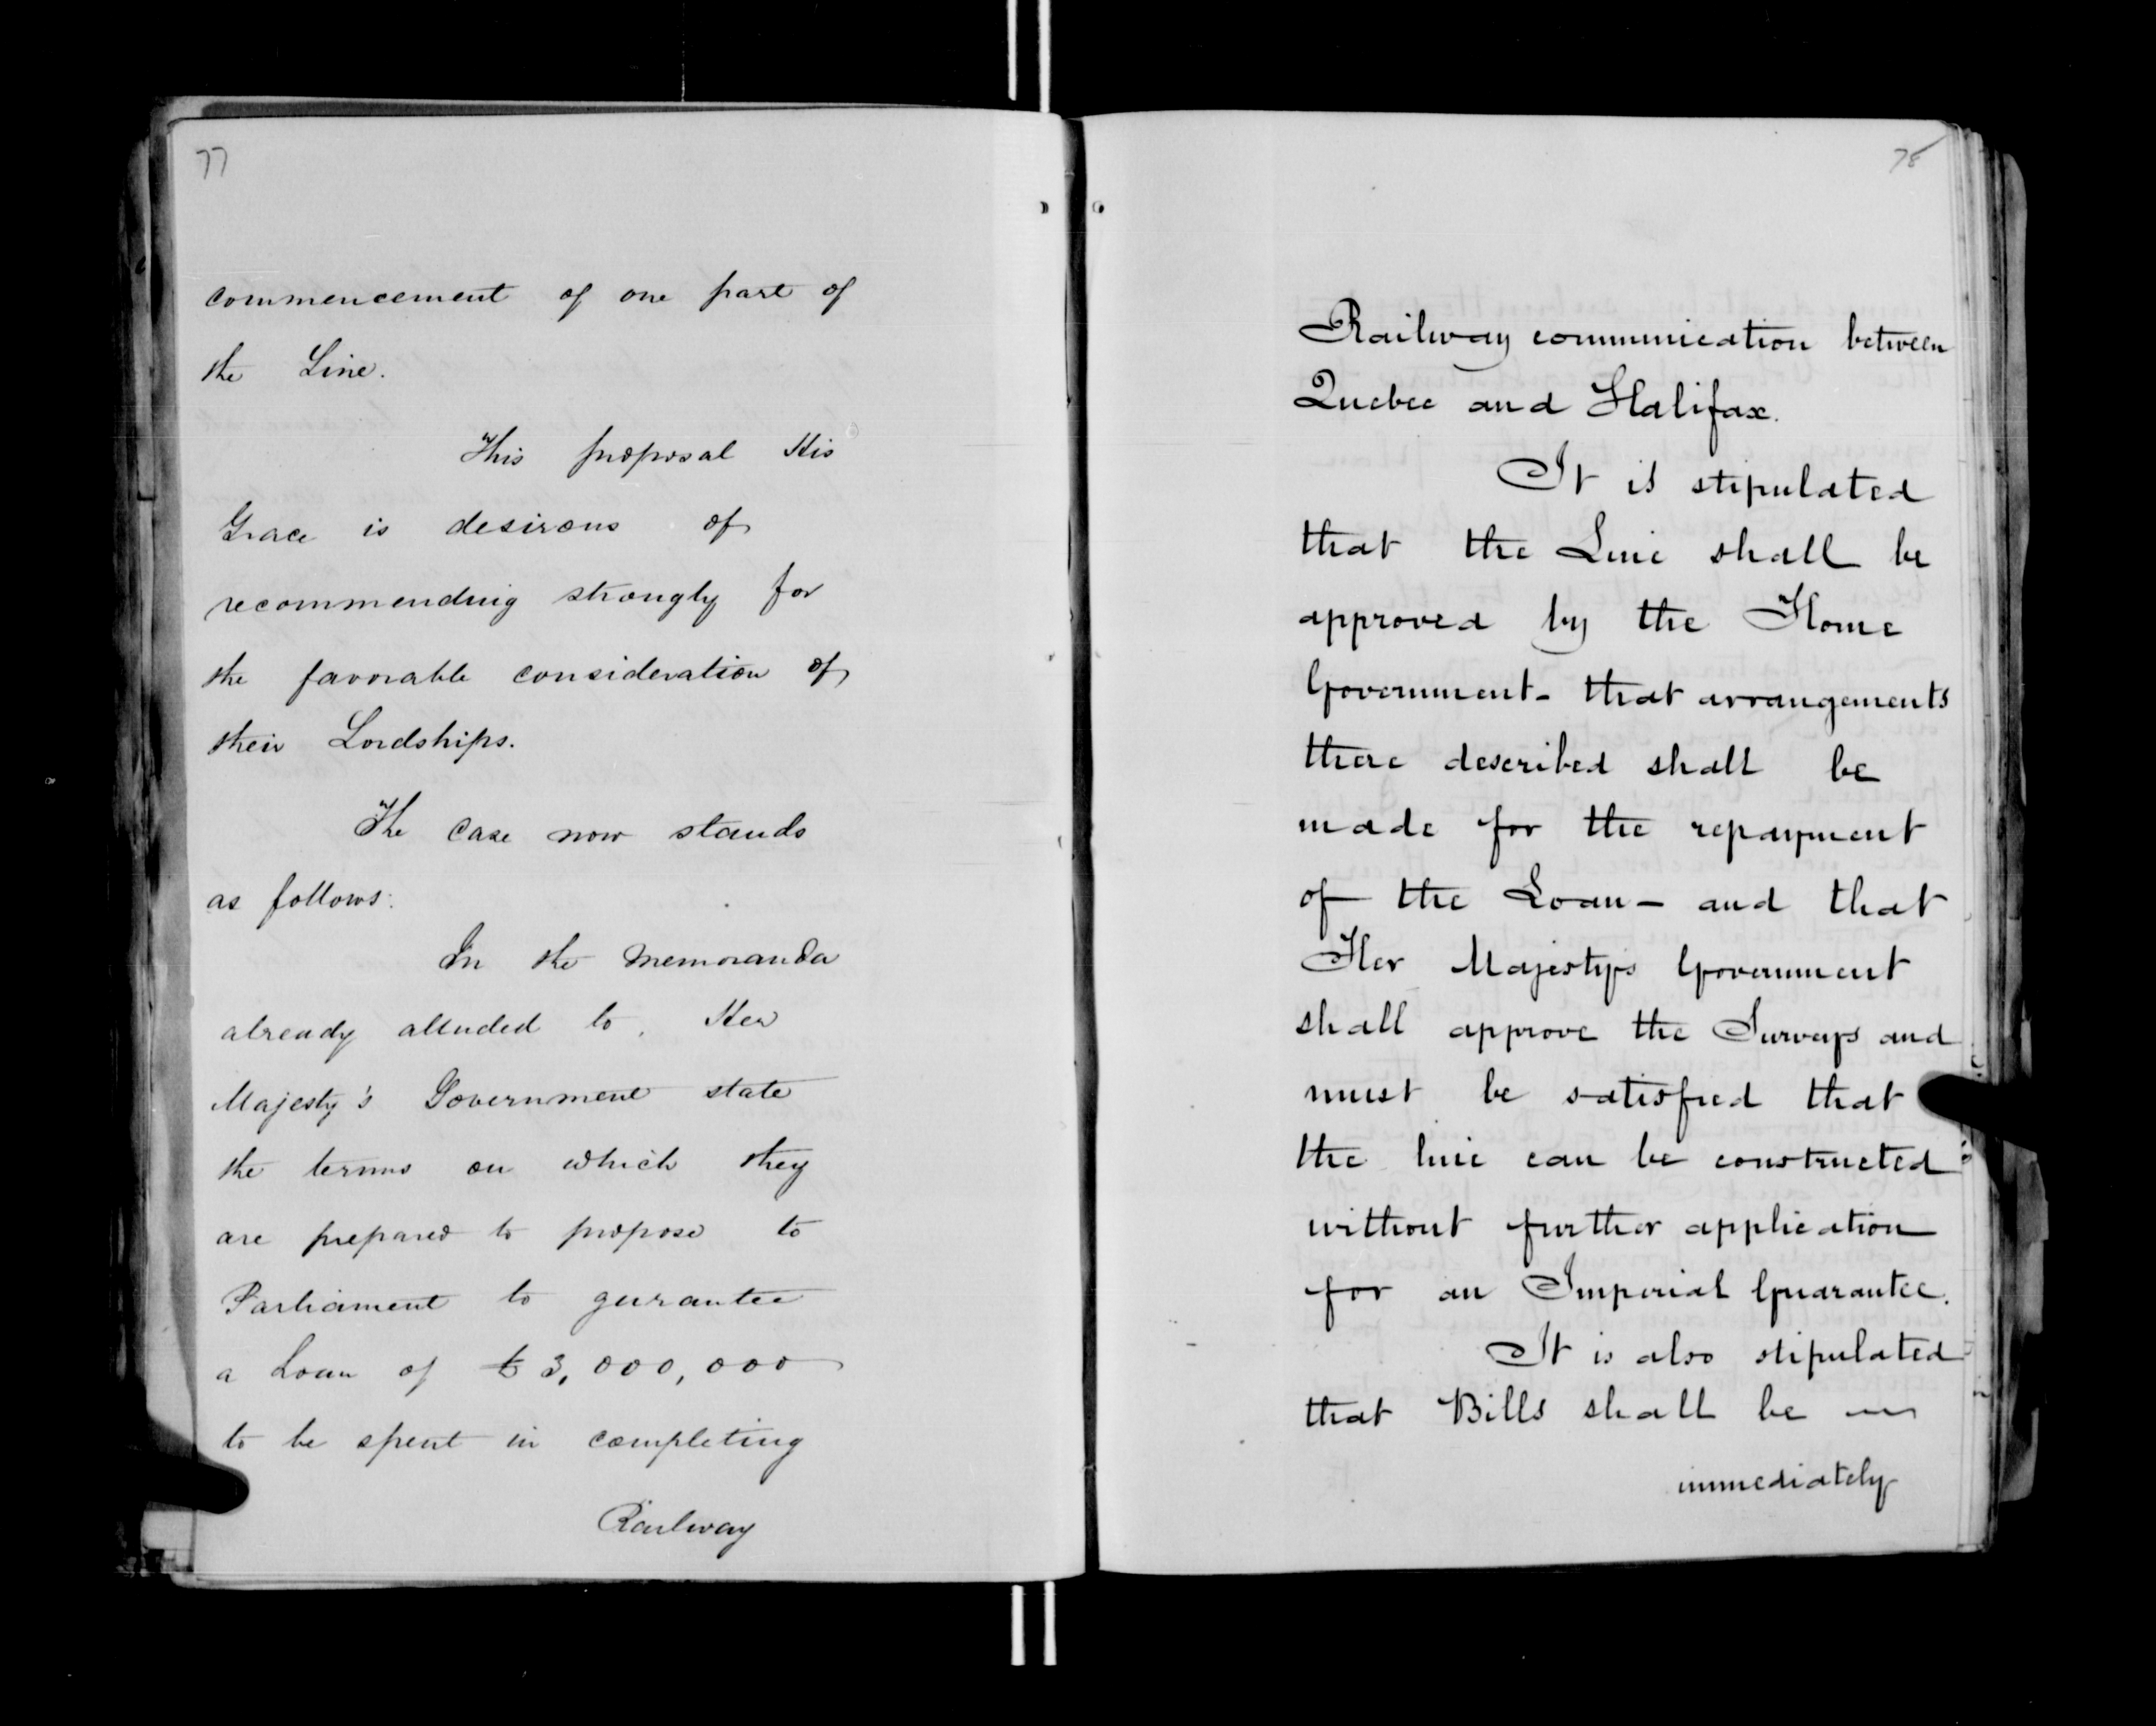 77
commencement of one part of
the Line.
This proposal His
Grace is desirous of
recommending strongly for
the favorable consideration of
their Lordships.
The case now stands
as follows:
In the Memoranda
already alluded to, Her
Majesty's Government state
the terms on which they
are prepared to propose to
Parliament to gurantee
a Loan of £3,000,000
to be spent in completing
Railway
78
Railway communication between
Quebec and Halifax.
It is stipulated
that the Line shall be
approved by the Home
Government - that arrangements
there described shall be
made for the repayment
of the Loan - and that
Her Majesty's Government
shall approve the Surveys and
must be satisfied that
the line can be constructed
without further application
for an Imperial Guarantee.
It is also stipulated
that Bills shall be
immediately